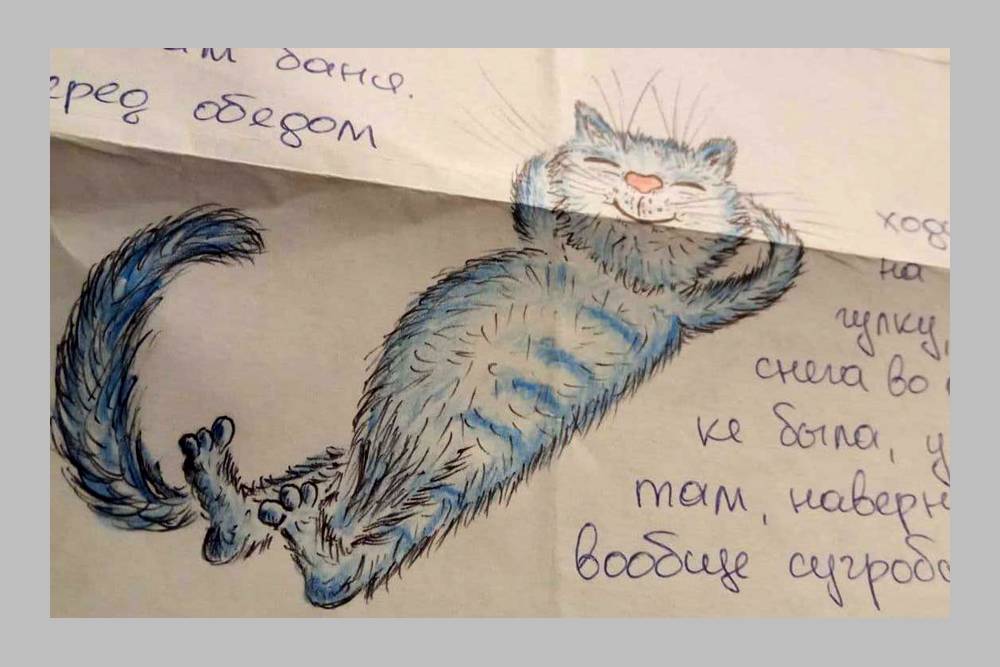 баня.
обедом
на
гулку,
снега во
ке была, у
там, наверн
вообще сугроб